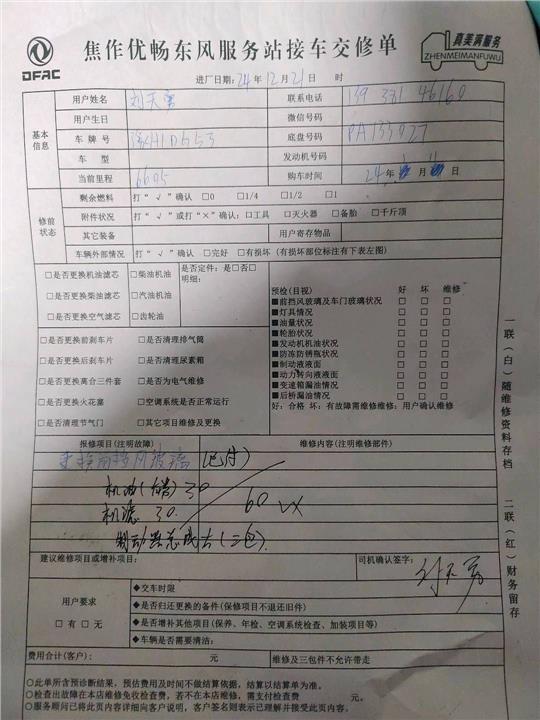 DFAC
焦作优畅东风服务站接车交修单
真美满服务
ZHENMEIMANFUWU
进厂日期：24年12月21日 时
基本信息
用户姓名 刘天勇 联系电话
用户生日 微信号码
车牌号 底盘号码 PA133027
车型 发动机号码
当前里程 6605 购车时间 24年 月 日
修前状态
剩余燃料 打“√”确认 □0 □1/4 □1/2 □1
附件状况 打“√”或打“×”确认：□工具 □灭火器 □备胎 □千斤顶
其它装备 用户寄存物品
车辆外部情况 打“√”确认 □完好 □有损坏（有损坏部位标注有下表左图）
□是否更换机油滤芯 □柴油机油 是否定件：是□否□
明细：
□是否更换柴油滤芯 □汽油机油
□是否更换空气滤芯 □齿轮油
□是否更换前刹车片 □是否清理排气筒
□是否更换后刹车片 □是否清理尿素箱
□是否更换离合三件套 □是否为电气维修
□是否更换火花塞 □空调系统是否正常运行
□是否清理节气门 □其它项目维修及更换
预检(目视) 好 坏 维修
■前挡风玻璃及车门玻璃状况 □ □ □
■灯具情况 □ □ □
■油量状况 □ □ □
■轮胎状况 □ □ □
■发动机机油状况 □ □ □
■防冻防锈瓶状况 □ □ □
■制动液液面 □ □ □
■动力转向液液面 □ □ □
■变速箱漏油情况 □ □ □
■后桥漏油情况 □ □ □
好：合格 坏：有故障需维修维修：用户确认维修
报修项目(注明故障) 维修内容(注明维修部件)
更换前挡风玻璃（已付）
机油（有赠）30
机滤 30. 60
制动器总成右（三包）
建议维修项目或增补项目： 司机确认签字： 刘天勇
用户要求
□有 □无
◆交车时限
◆是否归还更换的备件(保修项目不退还旧件)
◆是否增补其他项目(保养、年检、空调系统检查、加装项目等)
◆车辆是否需要清洁：
费用合计(客户)： 元 维修及三包件不允许带走
○此单所含预诊断结果，预估费用及时间不做结算依据，结算以结算单为准。
○检查出故障在本店维修免收检查费，若不在本店维修，需支付检查费 元。
○服务顾问已将此页内容详细向客户说明，客户签名则表示已理解并接受此页内容。
一联（白）随维修资料存档
二联（红）财务留存